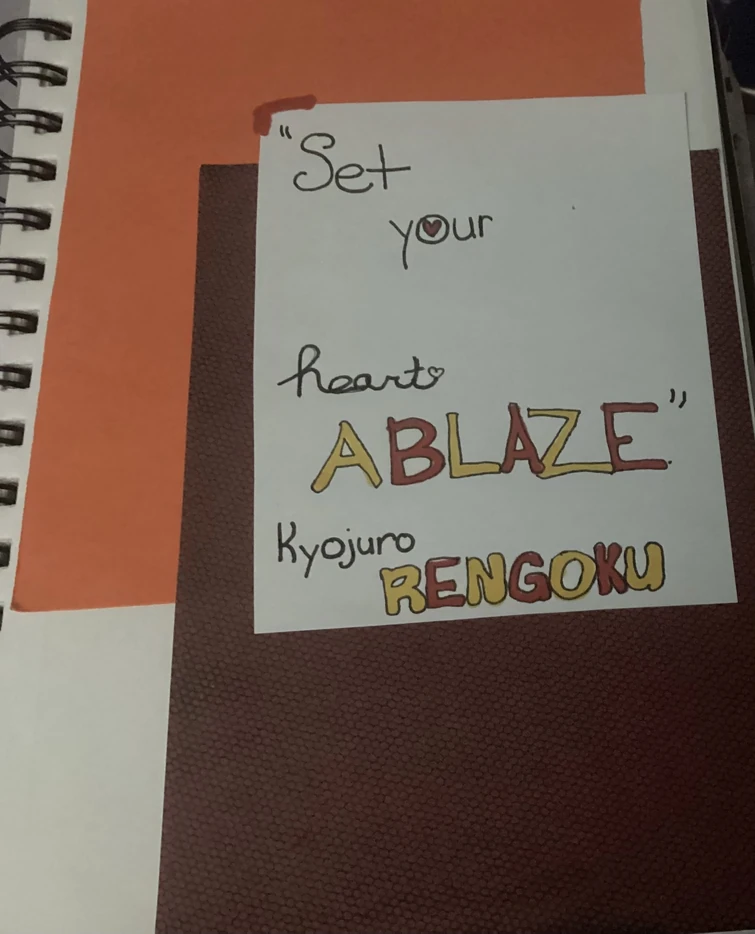 "Set
your
heart
ABLAZE."
Kyojuro
RENGOKU